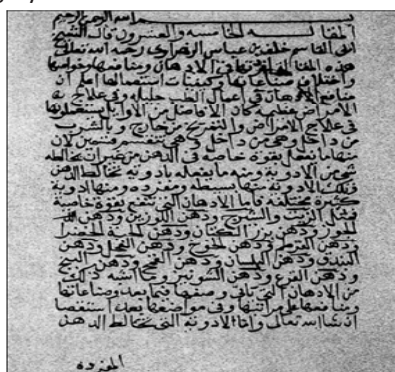 بسم الله الرحمن الرحيم
المقالة الخامسة والعشرون قال الشيخ
ابي القاسم خلف بن عباس الزهراوي رحمه الله تعالى
هذه المقالة في الادهان ومنافعها وخواصها
واختلاف صناعاتها وكيفيات استعمالها اعلم ان
منافع الادهان في اعمال الطب جليله وفي علاج
الامراض عظيمة كان الافاضل من الاوايل يستعملونها
في علاج الامراض والتمريخ من خارج وبالشرب
من داخل وهي من داخل وهي تنقسم قسمين لان
منها ما يفعل بقوة خاصة في الدهن من غير ان يخالطه
شي من الادوية ومنه ما يفعله بادوية تخالط الدهن
وتلك الادوية منها بسيطه ومفرده ومنها ادوية
كثيرة مختلفة فاما الادهان التي تنفع بقوة خاصية
فمثل الزيت والشيرج ودهن اللوزين ودهن
الجوز ودهن بزر الكتان ودهن الحبة الخضرا
ودهن القرطم ودهن الخوخ ودهن الفجل ودهن
البندق ودهن البلسان ودهن القمح ودهن البنج
ودهن القرع ودهن الشونيز وما اشبه ذلك
من الادهان التي ناتي وصفها فيما بعد وصناعاتها
ومنافعها على مراتبها وفي مواضعها بعد استقصا
ان شا الله تعالى واما الادوية التي تخالط الدهن
المفرده